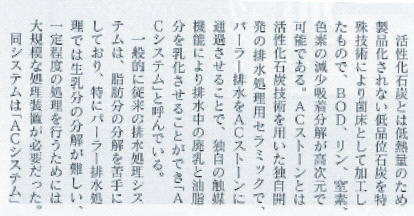 活性化石炭とは低熱量のため
製品化されない低品位石炭を特
殊技術により菌床として加工し
たもので、BOD、リン、窒素、
色素の減少吸着分解が高次元で
可能である。ACストーンとは
活性化石炭技術を用いた独自開
発の排水処理用セラミックで、
パーラー排水をACストーンに
通過させることで、独自の触媒
機能により排水中の廃乳と油脂
分を乳化させることができ「A
Cシステム」と呼んでいる。
　一般的に従来の排水処理シス
テムは、脂肪分の分解を苦手に
しており、特にパーラー排水処
理では生乳分の分解が難しい、
一定程度の処理を行うためには
大規模な処理装置が必要だった。
　同システムは「ACシステム」